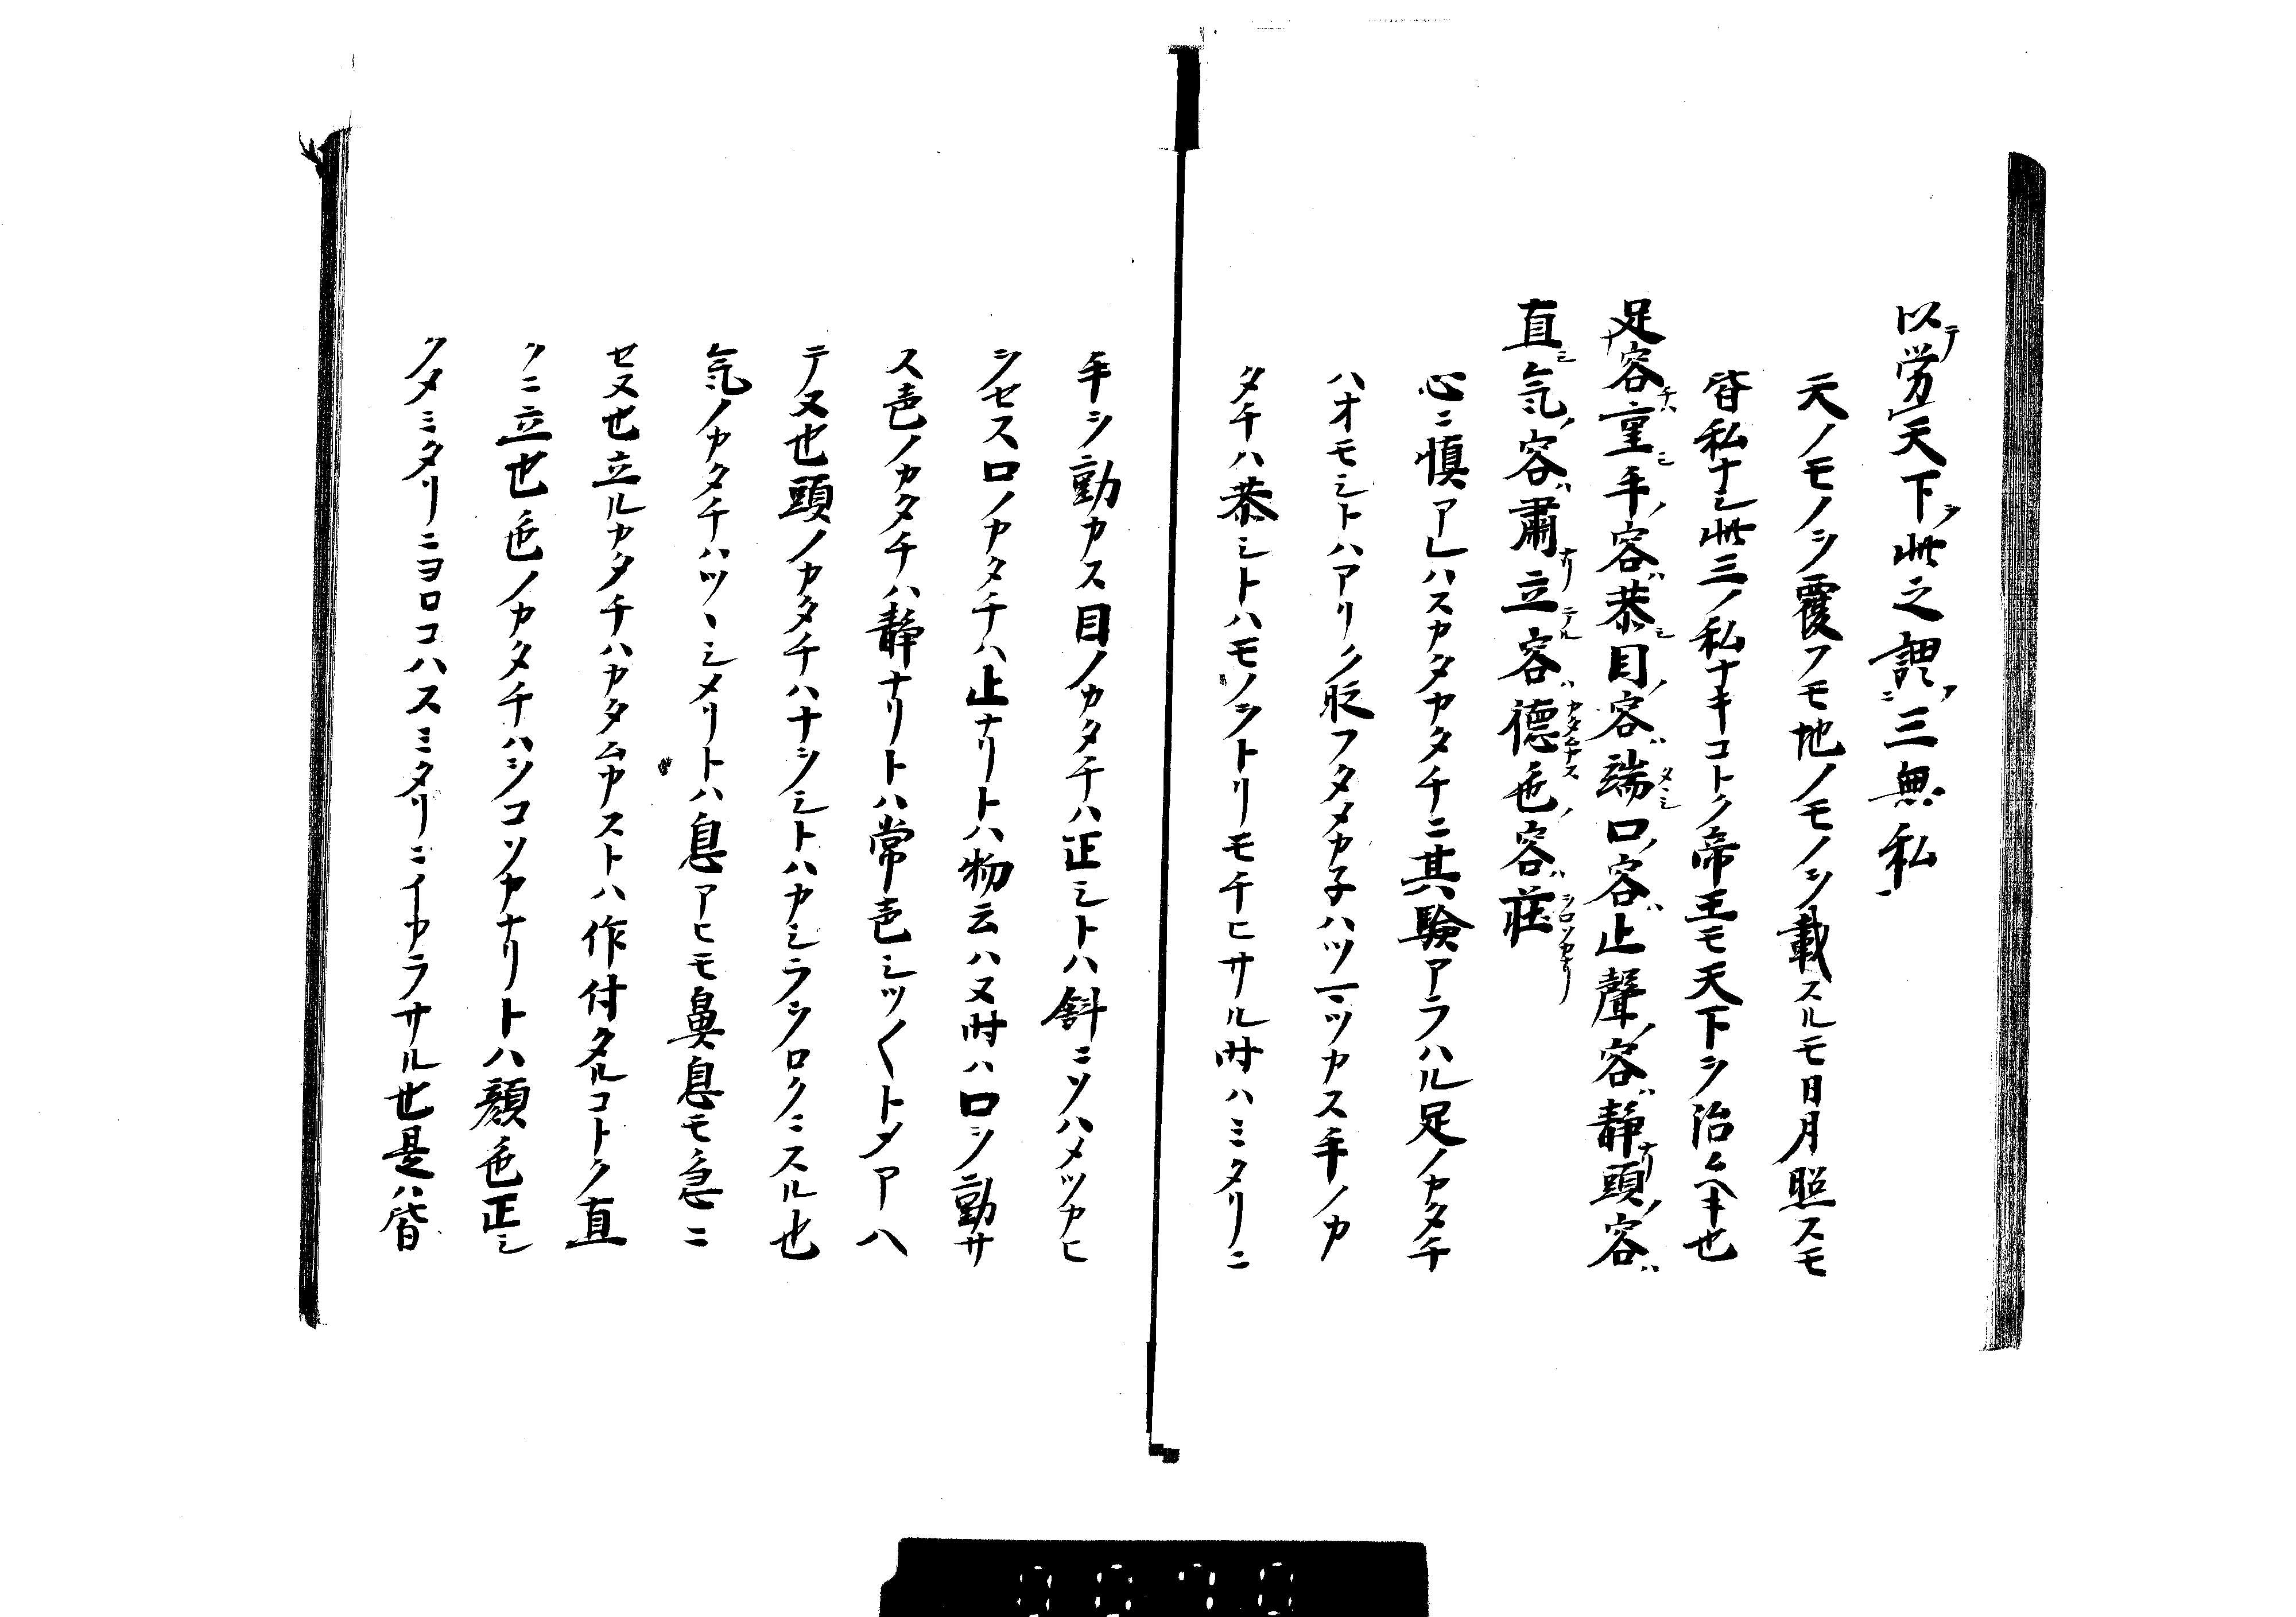 以テ労天下ヲ此之謂フ三無私ニ
天ノモノヲ覆フモ地ノモノヲ載スルモ日月照スモ
皆私ナシ此三ノ私ナキコトク帝王モ天下ヲ治ムヘキ也
足容重シ手ノ容ハ恭シ目ノ容ハ端タヽシ口ノ容ハ止聲ノ容ハ静ナリ頭ノ容ハ
直シ氣ノ容ハ肅ナリ立テル容ハ徳カタムナス色ノ容ハ荘ヲコソカナリ
心ニ慎アレハスカタカタチニ其験アラハル足ノカタチ
ハオモシトハアリク時フタメカ子ハツマツカス手ノカ
タチハ恭シトハモノヲトリモチヒサル時ハミタリニ
手ヲ動カス目ノカタチハ正シトハ斜ニソハメツカヒ
ヲセス口ノカタチハ止ナリトハ物云ハヌ時ハ口ヲ動サ
ス声ノカタチハ静ナリトハ常声シツ〱トメアハ
テヌ也頭ノカタチハナヲシトハカシラヲロクニスル也
氣ノカタチハツヽシメリトハ息アヒモ鼻息モ急ニ
セヌ也立ルカタチハカタムカストハ作付タルコトク直
クニ立也色ノカタチハヲコソカナリトハ顔色正シ
クメミタリニヨロコハスミタリニイカラサル也是ハ皆